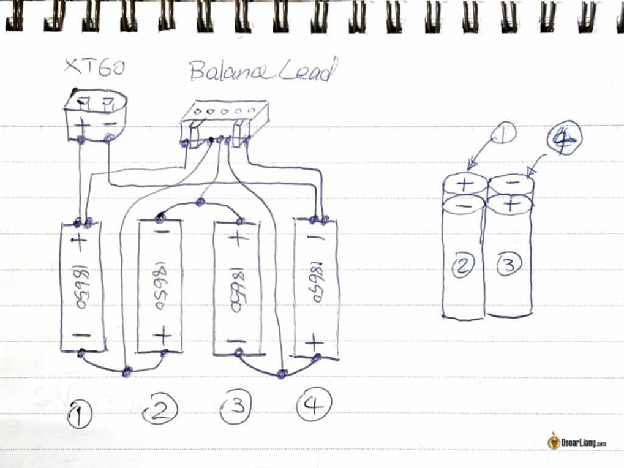 XT60 Balance Lead
+ -
① ④
+ - + -
- +
18650 18650 18650 18650
② ③
- + - +
① ② ③ ④
OscarLiang.com